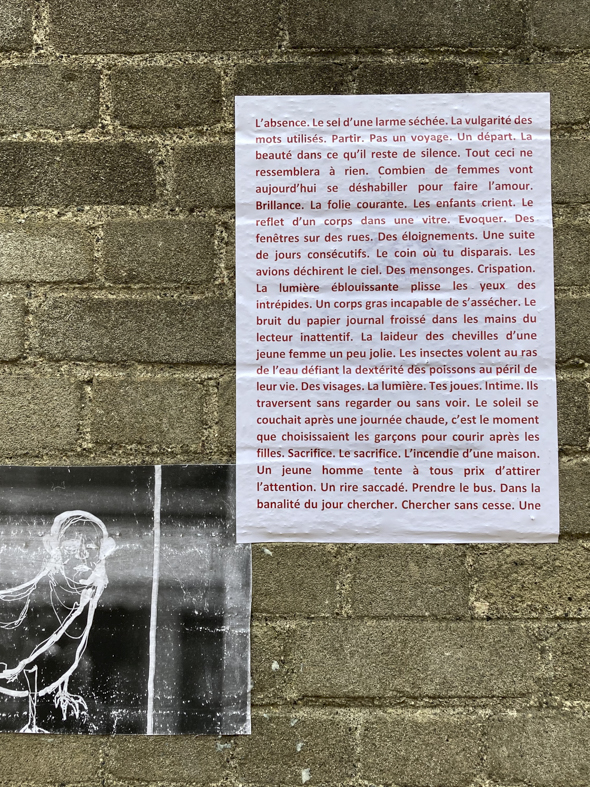 L'absence. Le sel d'une larme séchée. La vulgarité des
mots utilisés. Partir. Pas un voyage. Un départ. La
beauté dans ce qu'il reste de silence. Tout ceci ne
ressemblera à rien. Combien de femmes vont
aujourd'hui se déshabiller pour faire l'amour.
Brillance. La folie courante. Les enfants crient. Le
reflet d'un corps dans une vitre. Evoquer. Des
fenêtres sur des rues. Des éloignements. Une suite
de jours consécutifs. Le coin où tu disparais. Les
avions déchirent le ciel. Des mensonges. Crispation.
La lumière éblouissante plisse les yeux des
intrépides. Un corps gras incapable de s'assécher. Le
bruit du papier journal froissé dans les mains du
lecteur inattentif. La laideur des chevilles d'une
jeune femme un peu jolie. Les insectes volent au ras
de l'eau défiant la dextérité des poissons au péril de
leur vie. Des visages. La lumière. Tes joues. Intime. Ils
traversent sans regarder ou sans voir. Le soleil se
couchait après une journée chaude, c'est le moment
que choisissaient les garçons pour courir après les
filles. Sacrifice. Le sacrifice. L'incendie d'une maison.
Un jeune homme tente à tous prix d'attirer
l'attention. Un rire saccadé. Prendre le bus. Dans la
banalité du jour chercher. Chercher sans cesse. Une